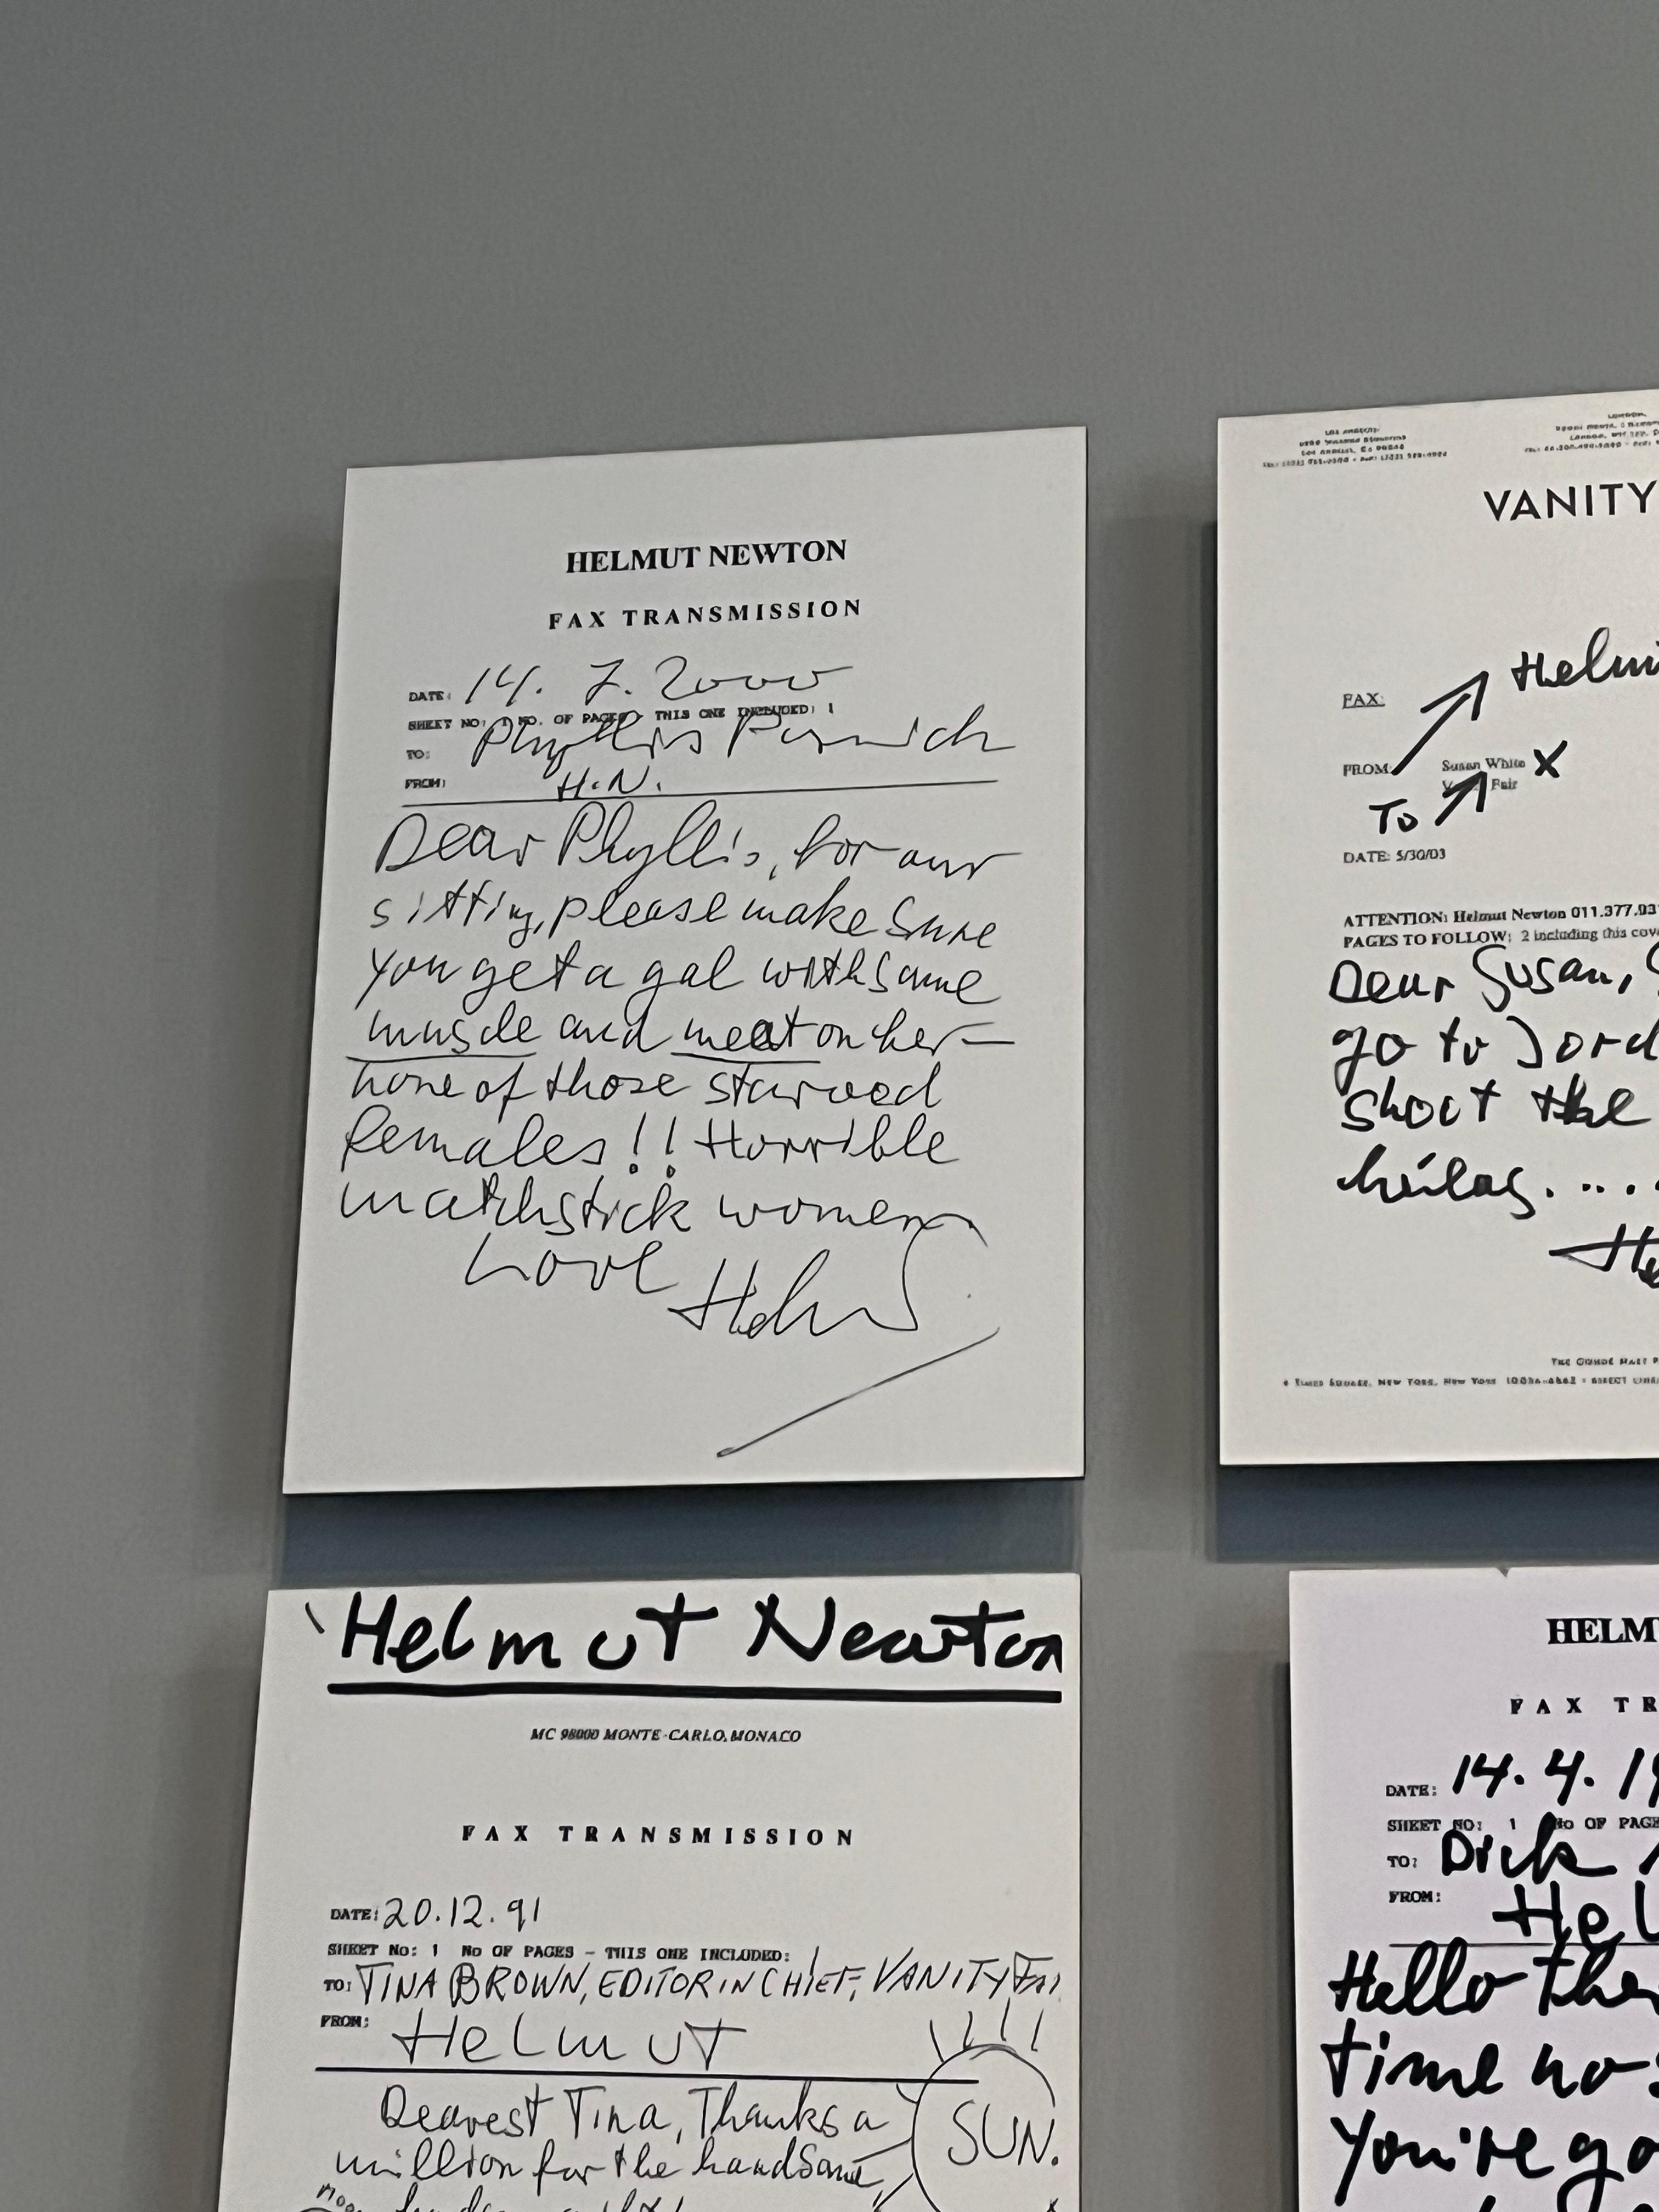 HELMUT NEWTON
FAX TRANSMISSION
DATE: 14. 7. 2000
SHEET NO: 1 NO. OF PAGES - THIS ONE INCLUDED: 1
TO: Phyllis
FROM: H.N.
Dear Phyllis, for our
sitting, please make sure
you get a gal with some
muscle and meat on her —
none of those starved
females!! Horrible
matchstick women
Love Helmut
VANITY
FAX: Helmu
FROM: Susan White X
Fair
To
DATE: 5/30/03
ATTENTION: Helmut Newton 011.377.93
PAGES TO FOLLOW: 2 including this cov
Dear Susan,
go to Jord
shoot the
hélas. . . . .
He
Helmut Newton
MC 98000 MONTE-CARLO, MONACO
FAX TRANSMISSION
DATE: 20.12.91
SHEET No: 1 No OF PAGES - THIS ONE INCLUDED: 1
TO: TINA BROWN, EDITOR IN CHIEF, VANITY FAI
FROM: HELMUT
Dearest Tina, Thanks a
million for the handsome
SUN.
HELM
FAX TR
DATE: 14. 4. 19
SHEET NO: 1 No OF PAGE
TO: Dick
FROM: Hel
Hello the
time no s
You're go